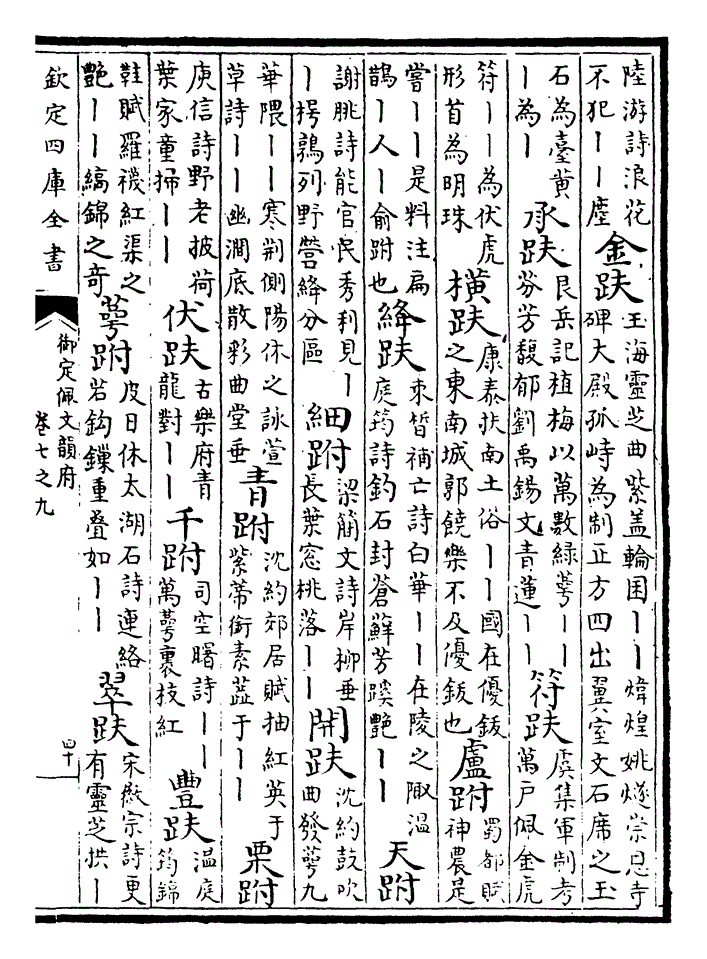 陸游詩浪花不犯丨丨塵金趺玉海靈芝曲紫盖輪囷丨丨煒煌姚燧崇恩寺碑大殿孤峙為制正方四出翼室文石席之玉
石為臺黄丨為丨承趺艮岳記植梅以萬數緑萼丨丨芬芳馥郁劉禹錫文青蓮丨丨符趺虞集軍制考萬户佩金虎
符丨丨為伏虎形首為明珠横趺康泰扶南土俗丨丨國在優鈑之東南城郭饒樂不及優鈑也盧跗蜀都賦神農是
嘗丨丨是料注扁鵲丨人丨俞跗也絳趺束晳補亡詩白華丨丨在陵之陬温庭筠詩釣石封蒼蘚芳蹊艷丨丨天跗
謝朓詩能官民秀利見丨丨枵鶉列野營絳分區細跗梁簡文詩岸柳垂長葉窓桃落丨丨開趺沈約鼓吹曲發萼九
華隈丨丨寒荆側陽休之詠萱草詩丨丨幽澗底散彩曲堂垂青跗沈約郊居賦抽紅英于紫蒂銜素蕋于丨丨栗跗
庾信詩野老披荷葉家童掃丨丨伏趺古樂府青龍對丨丨千跗司空曙詩丨丨萬萼裏枝紅豐趺温庭筠錦
鞋賦羅襪紅渠之艷丨丨縞錦之奇萼跗皮日休太湖石詩連絡若鈎鏁重叠如丨丨翠趺宋徽宗詩更有靈芝拱丨
欽定四庫全書
御定佩文韻府
卷七之九
四十